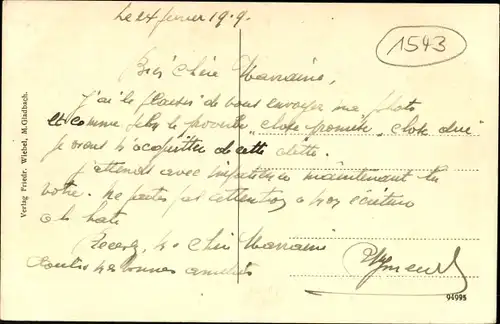 Le 24 février 19.9.
1543
Bien Chère Marraine,
J'ai le plaisir de vous envoyer ma photo
et comme le proverbe chose promise, chose due
je viens m'acquitter de cette dette.
J'attends avec impatience maintenant la
votre. Ne faites pas attention à mon écriture
à la hate
Recevez, ma Chère Marraine
toutes mes bonnes amitiés
Verlag Friedr. Wiebel, M.Gladbach.
94995